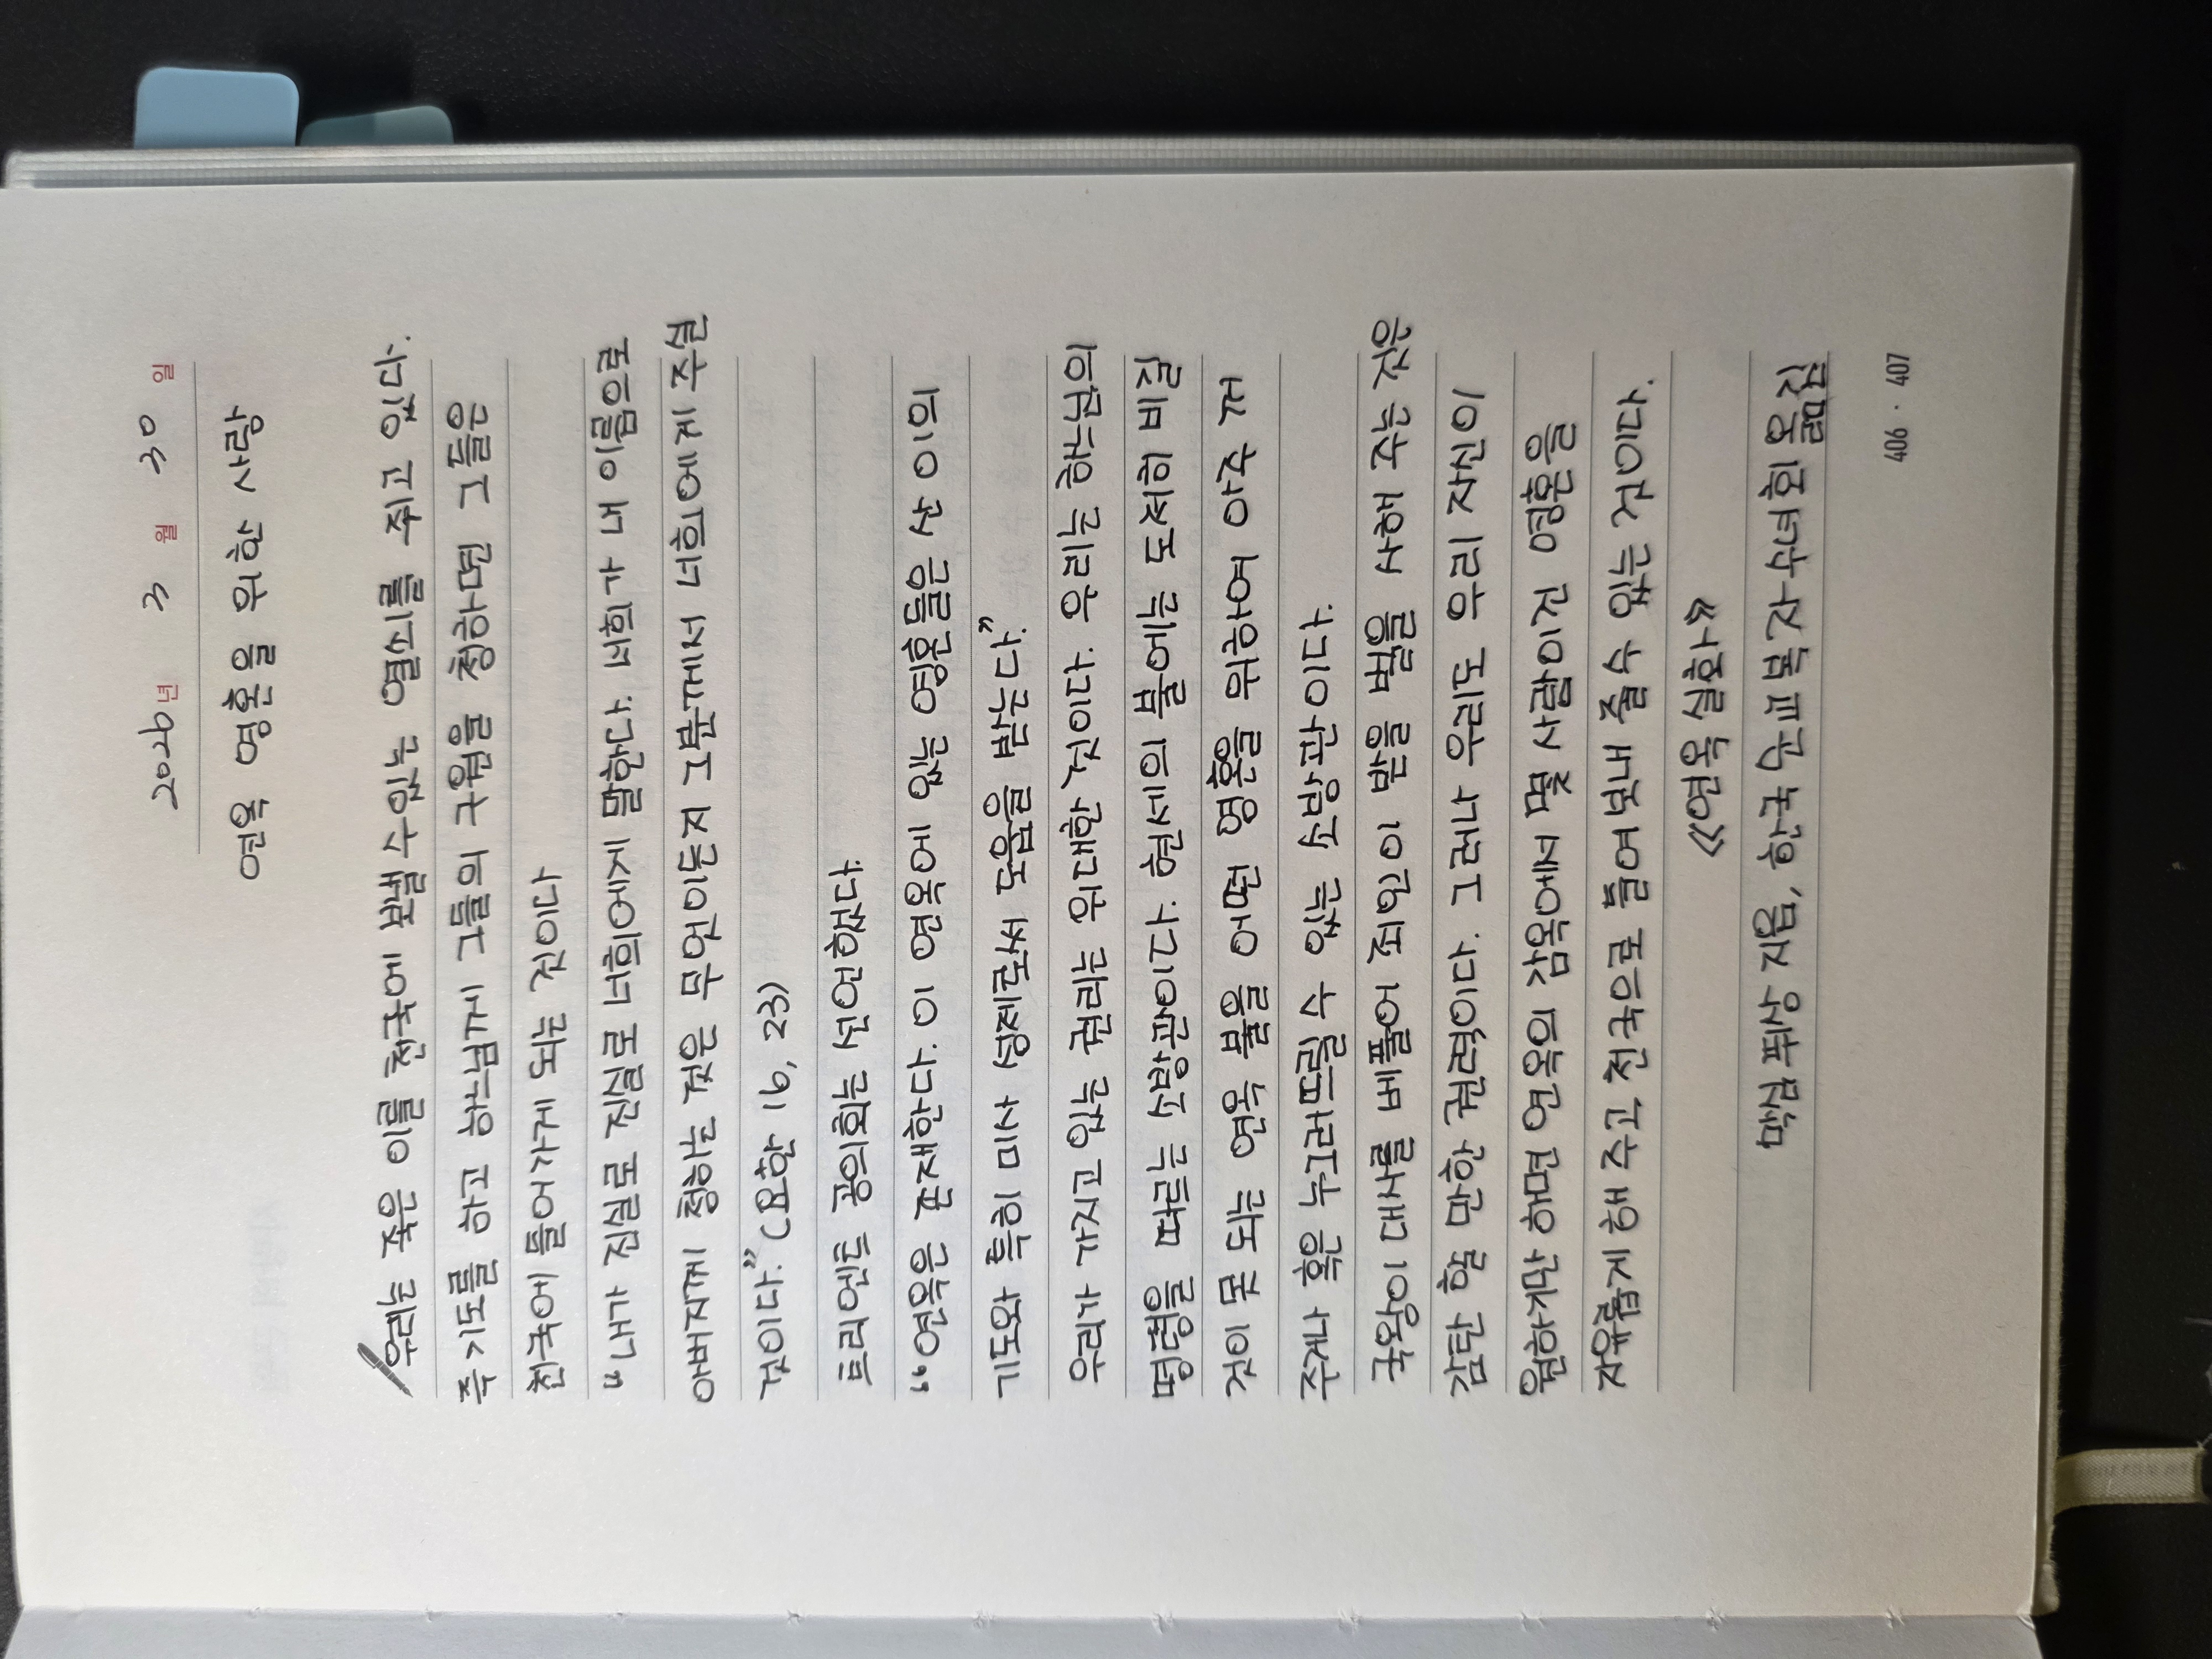 2026년 3월 30일
연옥 영혼을 위한 사랑
우리는 죽은 이를 천국에 보낼 수 있는 열쇠를 쥐고 있다.
즉 기도를 하고 하느님께 그들의 구원을 청하면 그들은
천국에 들어가게 되는 것이다
“내가 진실로 진실로 너희에게 말한다. 너희가 내 이름으로
아버지께 청하는 것은 무엇이든지 그분께서 너희에게 주실
것이다.” (요한 16, 23)
트리엔트 공의회는 선언했다.
“연옥은 존재한다. 이 연옥에 있는 영혼들은 산 이의
기도와 특히 미사 성제로써 도움을 받는다.”
우리가 가지고 있는 권리는 위대한 것이다. 우리는 하느님의
명령을 따르는 소방관이다. 현세의 불에는 도저히 비길
것이 못 되는 연옥 불을 영혼을 위하여 꺼
주거나 혹은 누그러뜨릴 수 있는 소방관이다.
국왕이 대사를 베풀어 죄인이 받을 벌을 사해 주는 것은
감탄 할 만한 권력이다. 그러나 우리도 우리 자신이
원하기만 하면 연옥의 감옥에서 몇 사람이건 영혼을
자유롭게 해 주고 천국으로 들여보내 줄 수 있는 것이다.
《연옥 실화》
막심 퓌상 지음, 한국 순교복자수녀회 옮김
406 · 407